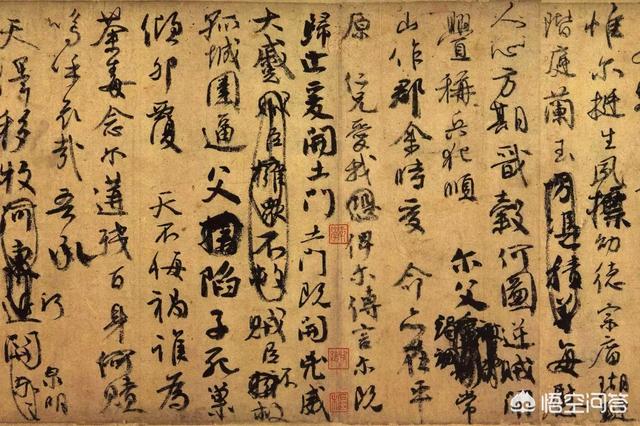 惟尔挺生夙標幼德宗廟瑚璉
階庭蘭玉方憑積善每慰
人心方期戩穀何圖逆賊間
釁稱兵犯順 尔父竭誠常
山作郡余時受命亦在平
原仁兄愛我恐俾尔傳言尔既
歸止爰開土門土門既開凶威
大蹙賊臣擁衆不救賊臣不救
孤城圍逼父擒陷子死巢
傾卵覆 天不悔禍誰爲
荼毒念尔遘殘百身何贖
嗚呼哀哉吾承
天澤移牧河東近河關泉明
悟空问答